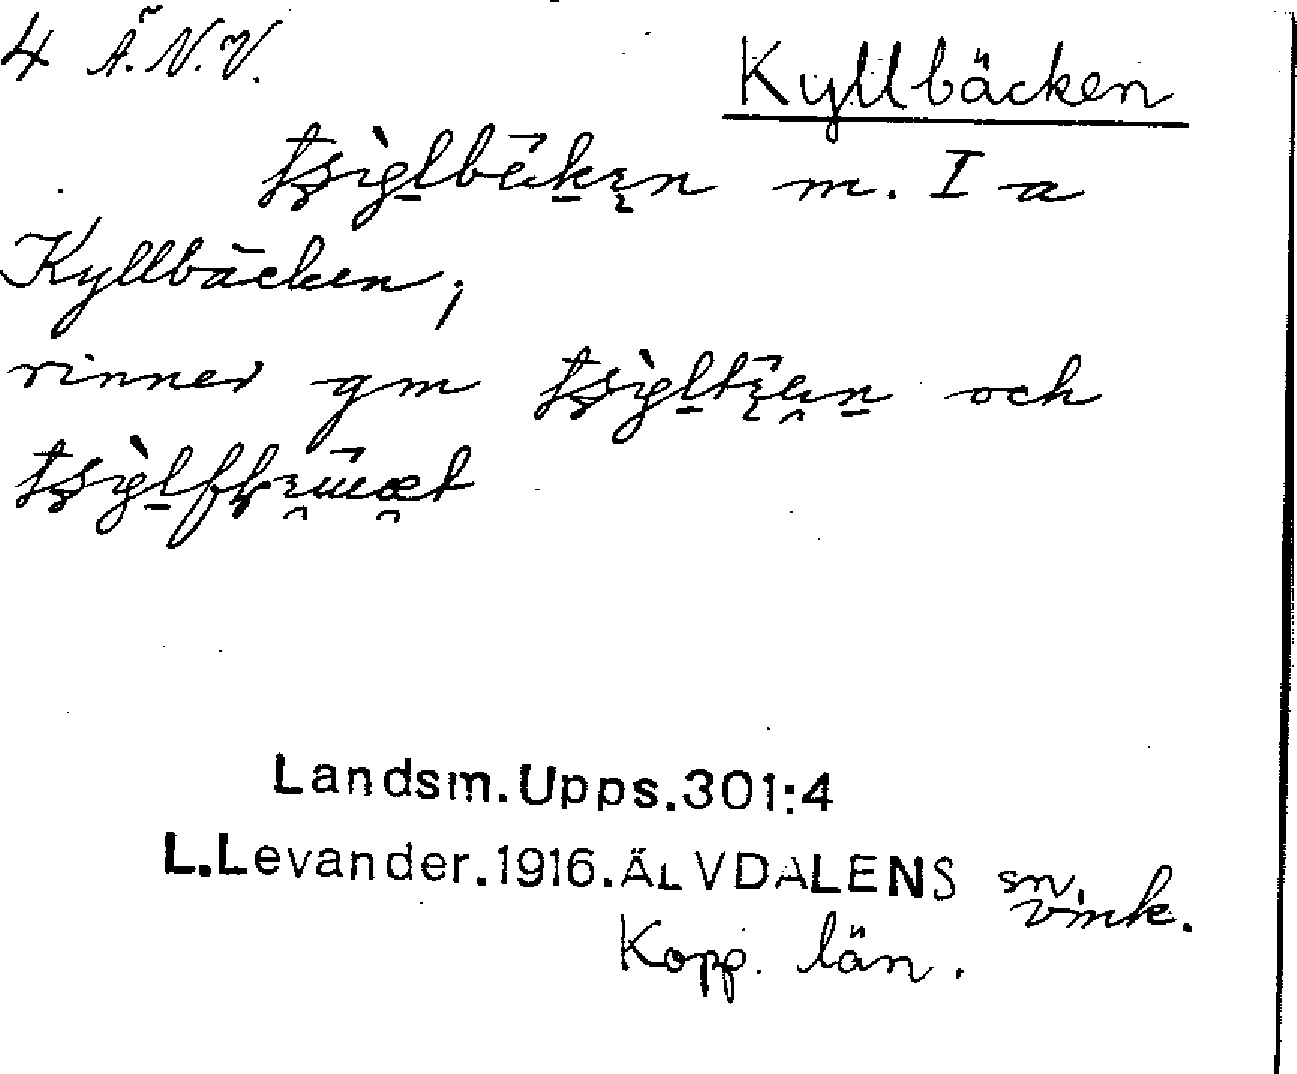 4 Ä.N.V.
Kyllbäcken
m. I a
Kyllbäcken,
rinner gm och
Landsm.Upps.301:4
L.Levander.1916.ÄLVDALENS sn,
Kopp. län.